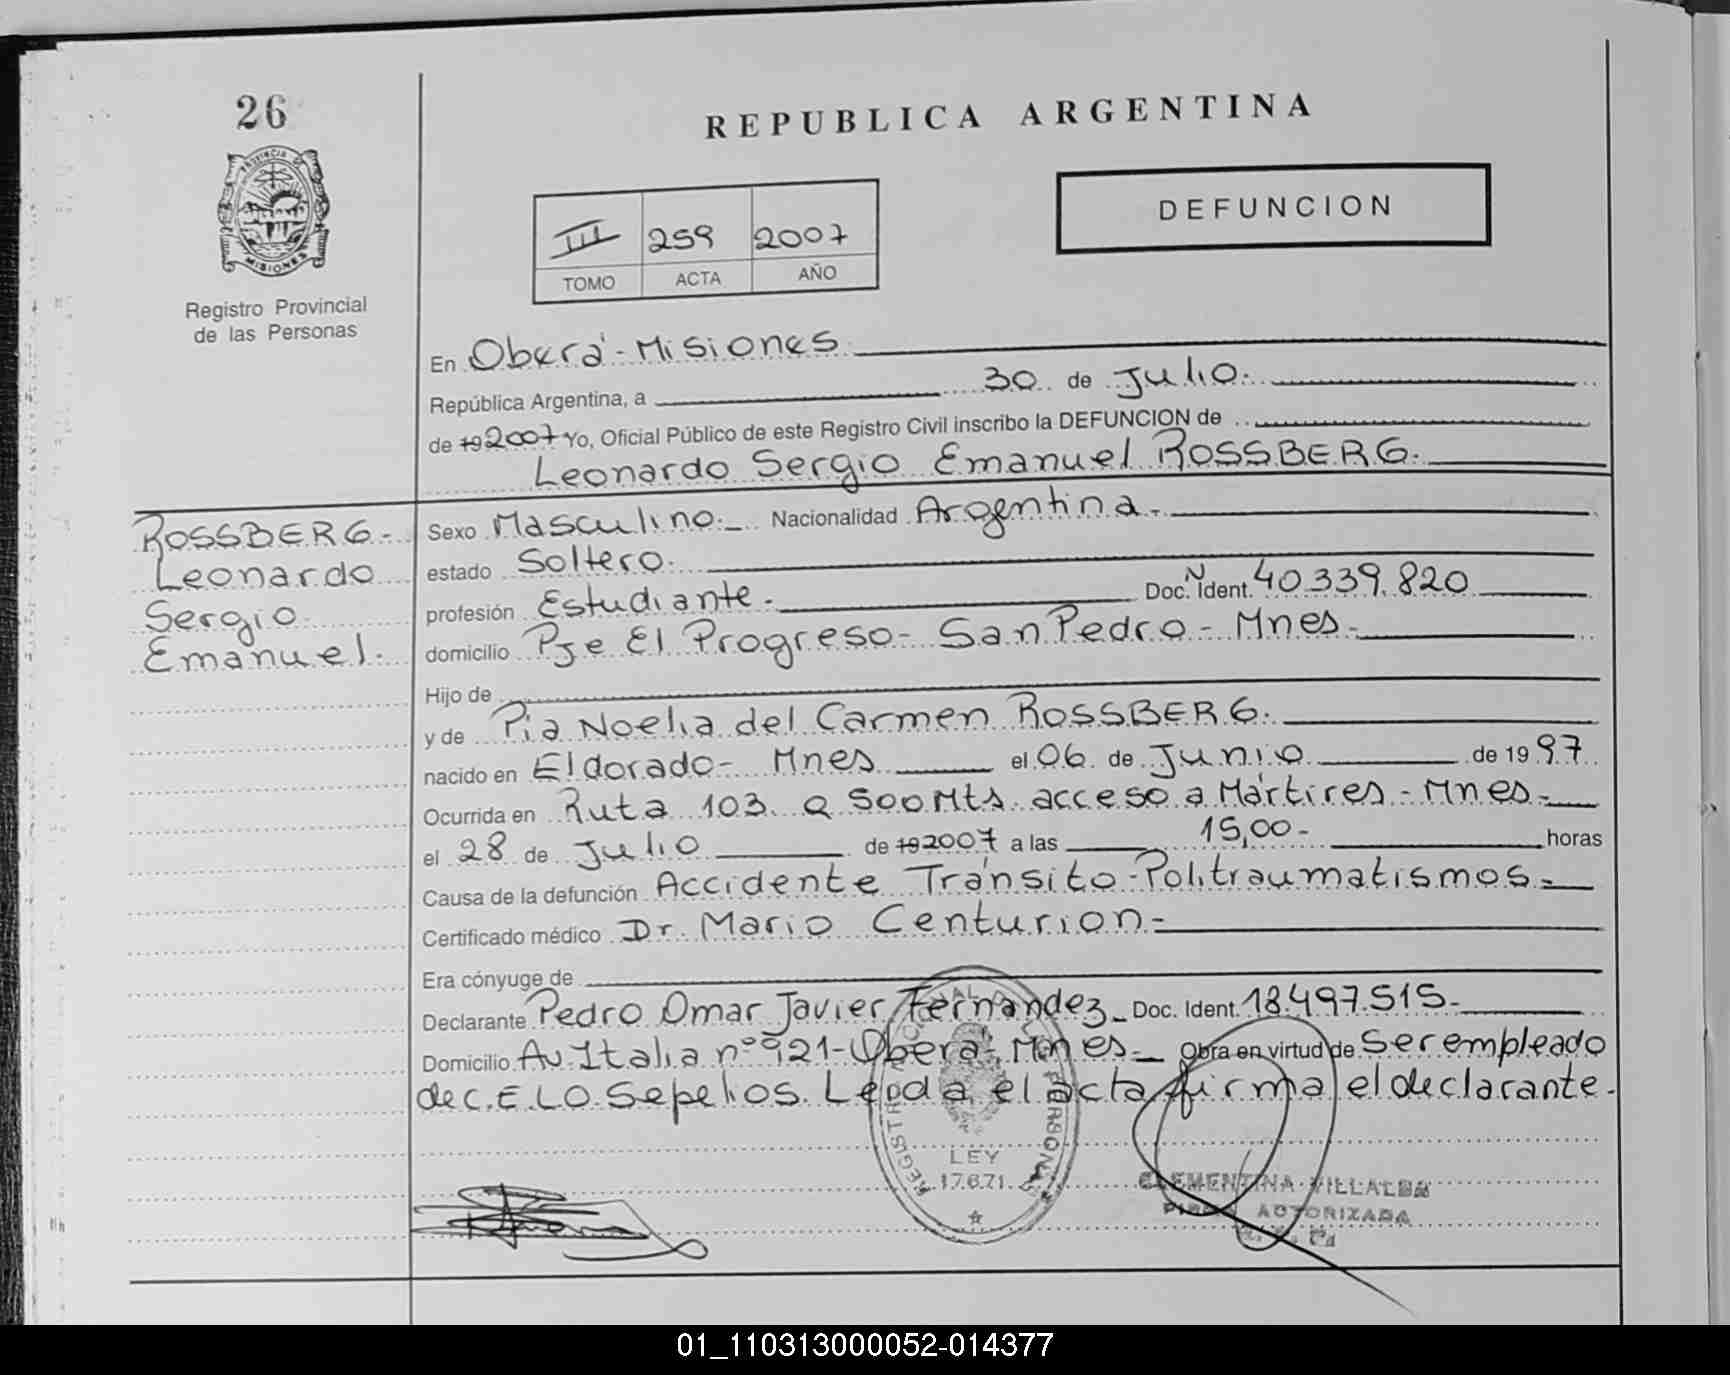 26
PROVINCIA DE
MISIONES
Registro Provincial
de las Personas
REPUBLICA ARGENTINA
III 259 2007
TOMO ACTA AÑO
DEFUNCION
En Oberá - Misiones.
República Argentina, a 30 de Julio.
de 19 2007 Yo, Oficial Público de este Registro Civil inscribo la DEFUNCION de
Leonardo Sergio Emanuel ROSSBERG.
ROSSBERG.-
Leonardo
Sergio
Emanuel.
Sexo Masculino.- Nacionalidad Argentina.-
estado Soltero.
profesión Estudiante.- Doc. N Ident. 40.339.820
domicilio Pje El Progreso - San Pedro - Mnes.-
Hijo de
y de Pia Noelia del Carmen ROSSBERG.
nacido en Eldorado - Mnes el 06 de Junio de 1997
Ocurrida en Ruta 103 a 500 Mts acceso a Mártires - Mnes-
el 28 de Julio de 19 2007 a las 15,00- horas
Causa de la defunción Accidente Tránsito - Politraumatismos.-
Certificado médico Dr. Mario Centurion-
Era cónyuge de
Declarante Pedro Omar Javier Fernandez Doc. Ident. 18.497.515-
Domicilio Av Italia nº 921 - Oberá - Mnes.- Obra en virtud de Ser empleado
de C.E.L.O. Sepelios. Leida el acta firma el declarante.
LEY
17.671
CLEMENTINA VILLALBA
FIRMA AUTORIZADA
01_110313000052-014377